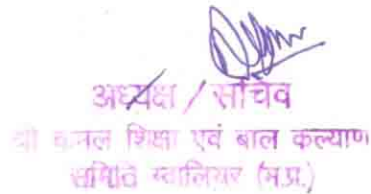 अध्यक्ष / सचिव
श्री कनल शिक्षा एवं बाल कल्याण
समिति ग्वालियर (म.प्र.)